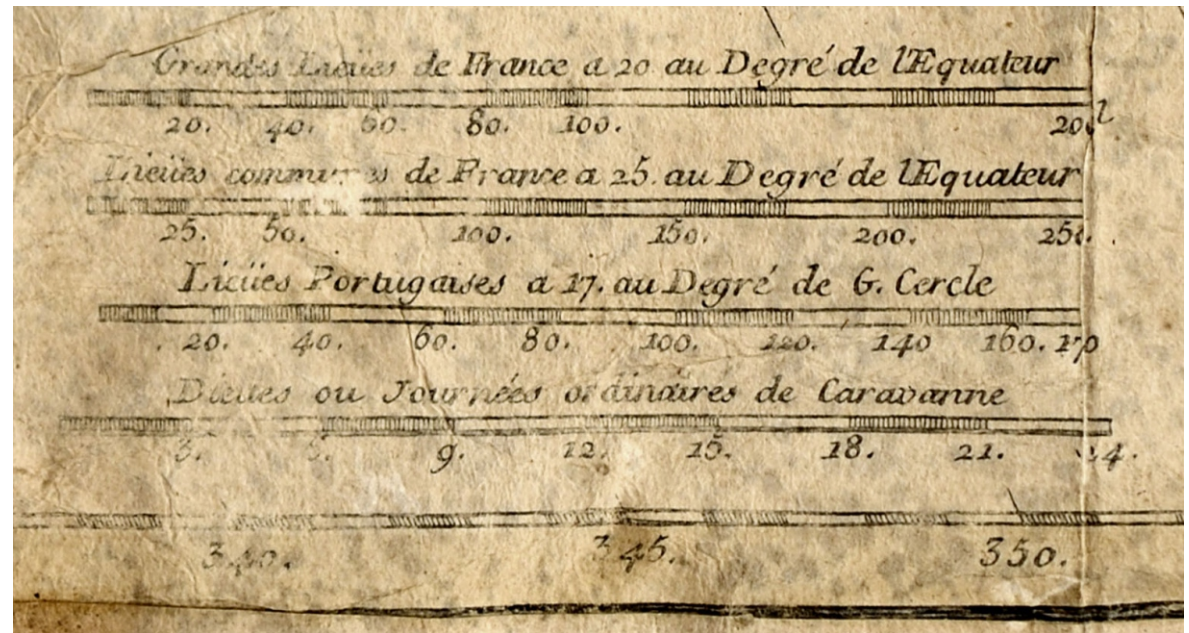 Grandes Lieües de France a 20 au Degré de l'Equateur
20. 40. 60. 80. 100. 200 l
Lieües communes de France a 25. au Degré de l'Equateur
25. 50. 100. 150. 200. 250.
Lieües Portugaises a 17. au Degré de G. Cercle
20. 40. 60. 80. 100. 120. 140 160. 170
Diettes ou Journées ordinaires de Caravanne
3. 6. 9. 12. 15. 18. 21. 24.
340. 345. 350.